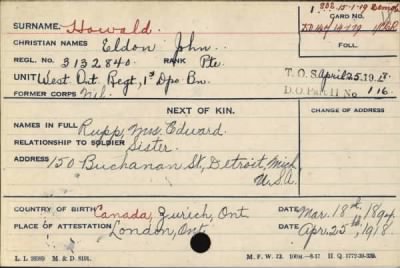 802 15-1-19 Demob
SURNAME. Howald.
CARD NO.
CHRISTIAN NAMES Eldon John.
REGL. NO. 3132840. RANK Pte.
FOLL.
UNIT West Ont Regt, 1st Dpo Bn.
T.O.S April 25.1918.
D.O. Part II No 116
FORMER CORPS Nil.
NEXT OF KIN.
CHANGE OF ADDRESS
NAMES IN FULL Rupp, Mrs. Edward.
RELATIONSHIP TO SOLDIER Sister.
ADDRESS 150 Buchanan St, Detroit, Mich
U.S.A.
COUNTRY OF BIRTH Canada, Zurich, Ont DATE Mar. 18th, 1894.
PLACE OF ATTESTATION London, Ont. DATE Apr. 25th, 1918.
M. & D. 8191. M. F. W. 22. H. Q. 1772-39-339.